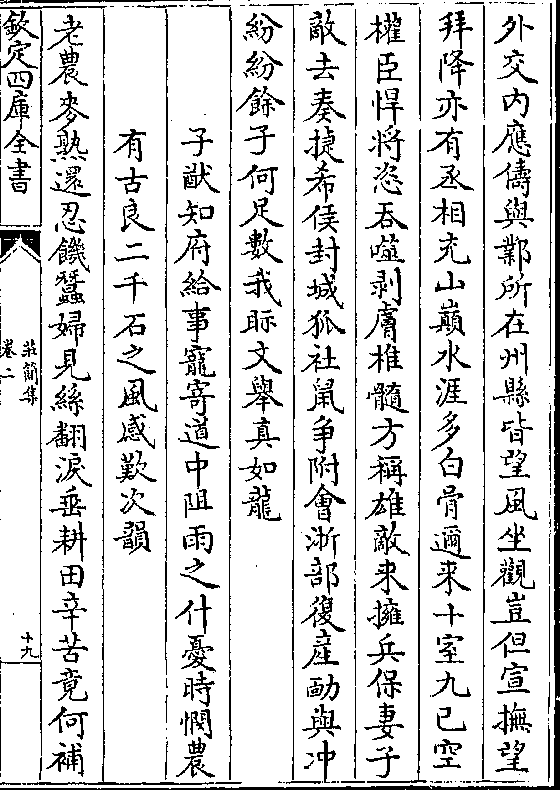 外交内應儔與鄰所在州縣皆望風坐觀豈但宣撫望
拜降亦有丞相充山巔水涯多白骨邇来十室九已空
權臣悍將恣吞噬剥膚椎髓方稱雄敵来擁兵保妻子
敵去奏捷希侯封城狐社鼠争附會浙部復産勔與冲
紛紛餘子何足數我眎文舉真如龍
子猷知府給事寵寄道中阻雨之什憂時憫農
有古良二千石之風感歎次韻
老農麥熟還忍饑蠶婦見絲翻淚垂耕田辛苦竟何補
欽定四庫全書
莊簡集
卷二
十九